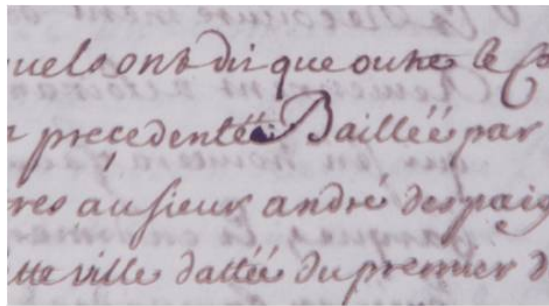 quels ont dit que outre le Co
n precedente Baillée par
res au sieur andré despaig
itte ville dattée du premier d